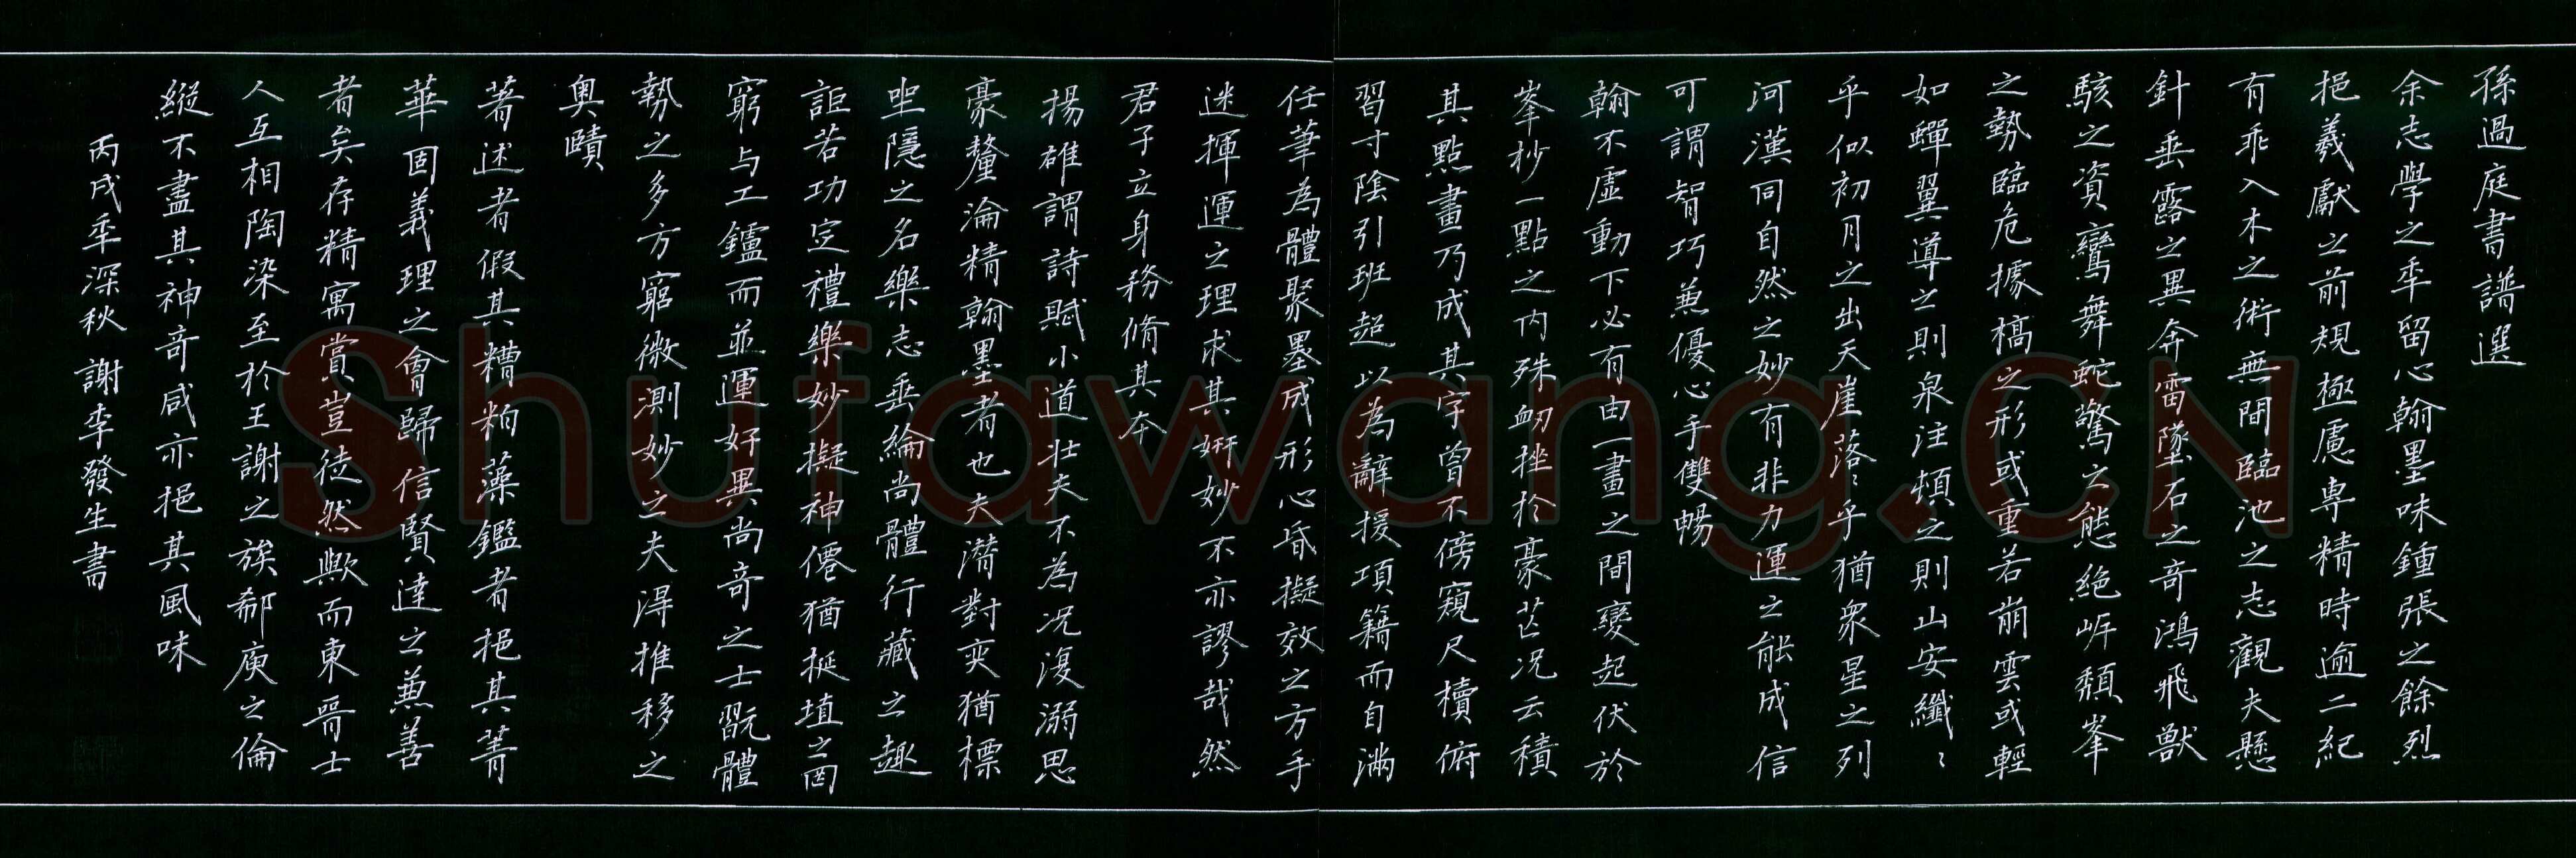 孫過庭書譜選
余志學之秊留心翰墨味鍾張之餘烈
挹羲獻之前規極慮專精時逾二紀
有乖入木之術無間臨池之志觀夫懸
針垂露之異奔雷墜石之奇鴻飛獸
駭之資鸞舞蛇驚之態絕岸頹峯
之勢臨危據槁之形或重若崩雲或輕
如蟬翼導之則泉注頓之則山安纖〻
乎似初月之出天崖落〻乎猶衆星之列
河漢同自然之妙有非力運之能成信
可謂智巧兼優心手雙暢
翰不虛動下必有由一畫之間變起伏於
峯杪一點之内殊衄挫於豪芒况云積
其點畫乃成其字曾不傍窺尺牘俯
習寸陰引班超以為辭援項籍而自滿
任筆為體聚墨成形心昏擬效之方手
迷揮運之理求其妍妙不亦謬哉然
君子立身務脩其本
揚雄謂詩賦小道壯夫不為况復溺思
豪釐淪精翰墨者也夫潛對奕猶標
坐隱之名樂志垂綸尚體行藏之趣
詎若功定禮樂妙擬神僊猶挻埴之罔
窮与工鑪而並運好異尚奇之士翫體
勢之多方窮微測妙之夫得推移之
奥賾
著述者假其糟粕藻鑑者挹其菁
華固義理之會歸信賢達之兼善
者矣存精寓賞豈徒然歟而東晉士
人互相陶染至於王謝之族郗庾之倫
縱不盡其神奇咸亦挹其風味
丙戌秊深秋謝李發生書
Shufawang.CN